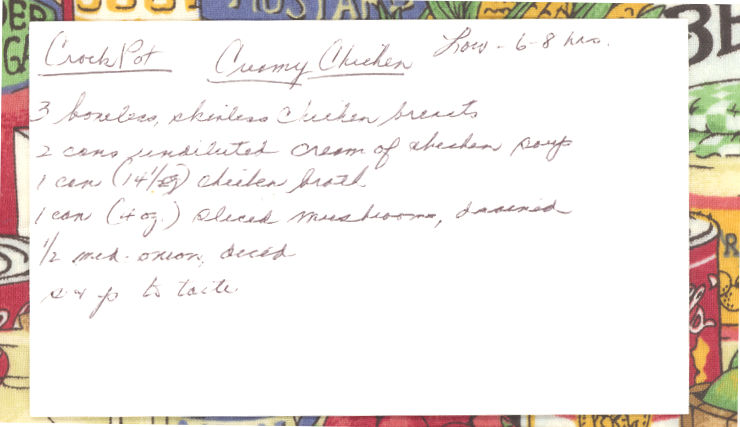 MUSTAR
BE
Crock Pot Creamy Chicken Low - 6-8 hrs.
3 boneless, skinless chicken breasts
2 cans undiluted cream of chicken soup
1 can (14½ oz) chicken broth
1 can (4 oz.) sliced mushrooms, drained
½ med. onion, diced
s & p to taste